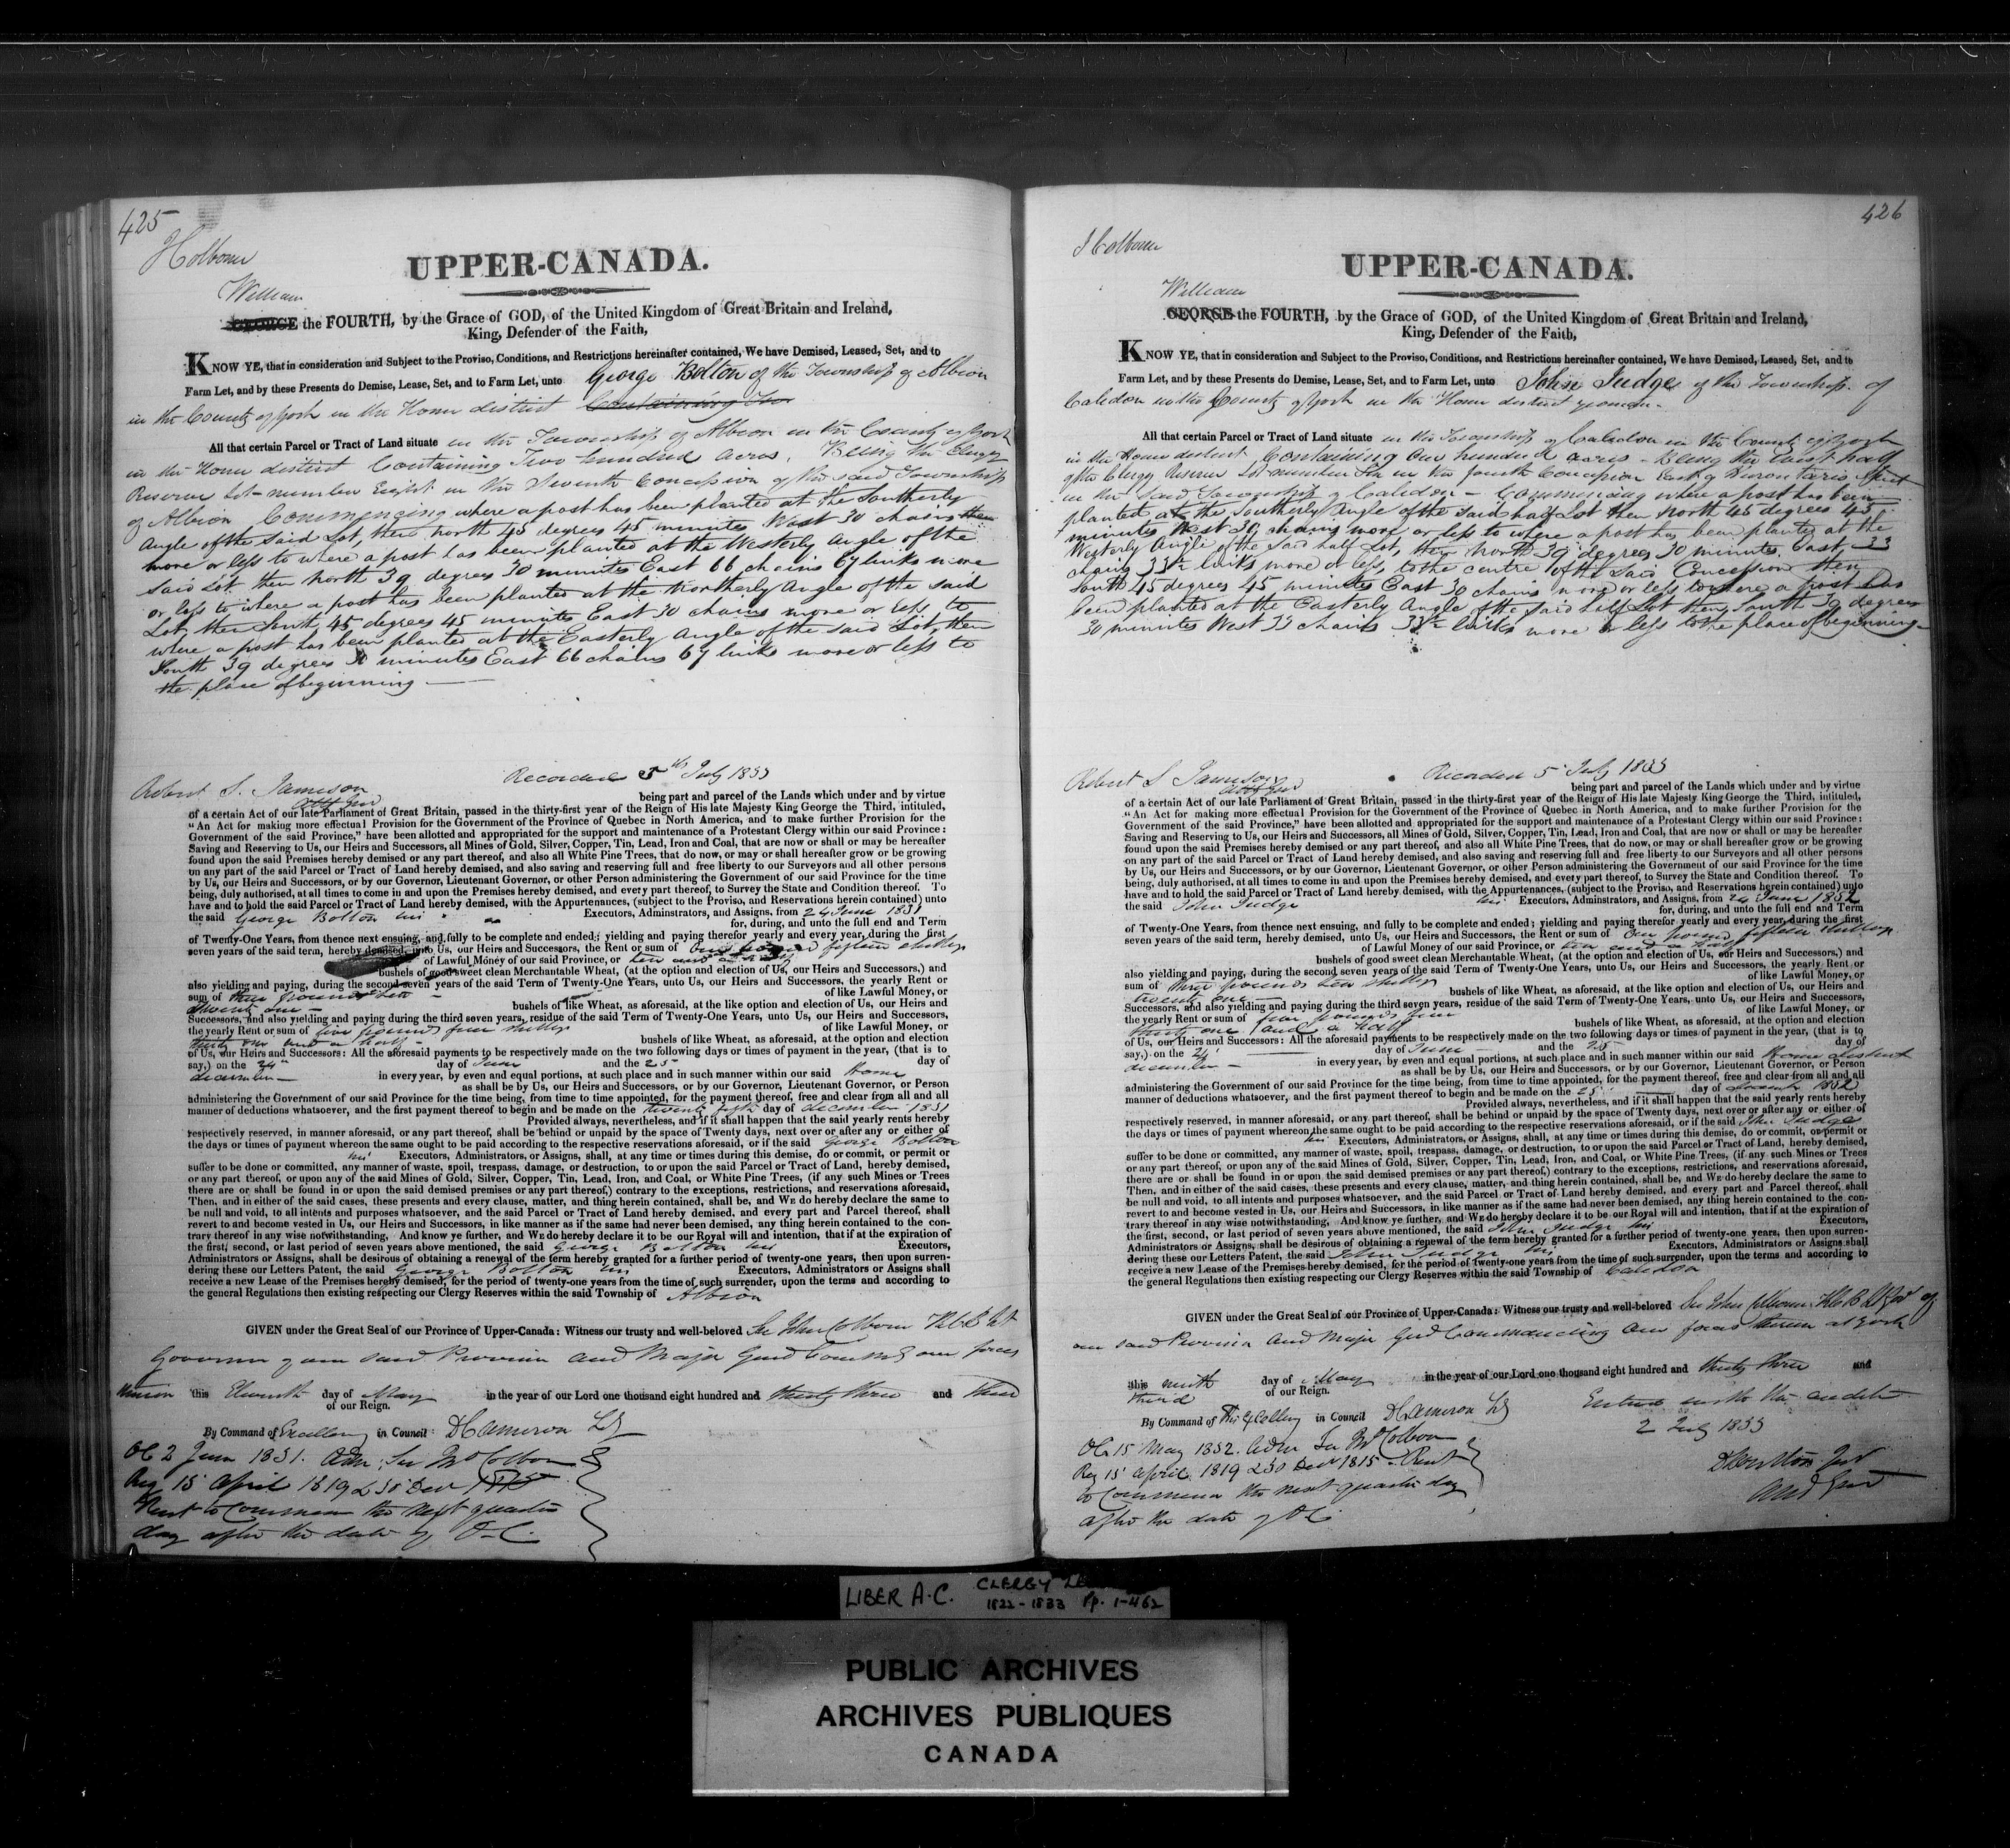 425
J Colborne
UPPER-CANADA.
William
GEORGE the FOURTH, by the Grace of GOD, of the United Kingdom of Great Britain and Ireland,
King, Defender of the Faith,
KNOW YE, that in consideration and Subject to the Proviso, Conditions, and Restrictions hereinafter contained, We have Demised, Leased, Set, and to
Farm Let, and by these Presents do Demise, Lease, Set, and to Farm Let, unto George Bolton of the Township of Albion
in the County of York in the Home district Containing Two
All that certain Parcel or Tract of Land situate in the Township of Albion in the County of York
in the Home district Containing Two hundred acres, Being the Clergy
Reserve Lot number Eight in the Seventh Concession of the said Township
of Albion Commencing where a post has been planted at the Southerly
Angle of the said Lot, then North 45 degrees 45 minutes West 30 chains then
more or less to where a post has been planted at the Westerly Angle of the
said Lot then North 39 degrees 30 minutes East 66 chains 67 links more
or less to where a post has been planted at the Northerly Angle of the said
Lot, then South 45 degrees 45 minutes East 30 chains more or less to
where a post has been planted at the Easterly Angle of the said Lot, then
South 39 degrees 30 minutes East 66 chains 67 links more or less to
the place of beginning
Robert S. Jameson Recorded 5th July 1833
Atty Gen being part and parcel of the Lands which under and by virtue
of a certain Act of our late Parliament of Great Britain, passed in the thirty-first year of the Reign of His late Majesty King George the Third, intituled,
"An Act for making more effectual Provision for the Government of the Province of Quebec in North America, and to make further Provision for the
Government of the said Province," have been allotted and appropriated for the support and maintenance of a Protestant Clergy within our said Province:
Saving and Reserving to Us, our Heirs and Successors, all Mines of Gold, Silver, Copper, Tin, Lead, Iron and Coal, that are now or shall or may be hereafter
found upon the said Premises hereby demised or any part thereof, and also all White Pine Trees, that do now, or may or shall hereafter grow or be growing
on any part of the said Parcel or Tract of Land hereby demised, and also saving and reserving full and free liberty to our Surveyors and all other persons
by Us, our Heirs and Successors, or by our Governor, Lieutenant Governor, or other Person administering the Government of our said Province for the time
being, duly authorised, at all times to come in and upon the Premises hereby demised, and every part thereof, to Survey the State and Condition thereof. To
have and to hold the said Parcel or Tract of Land hereby demised, with the Appurtenances, (subject to the Proviso, and Reservations herein contained) unto
the said George Bolton his Executors, Adminstrators, and Assigns, from 24 June 1831
for, during, and unto the full end and Term
of Twenty-One Years, from thence next ensuing, and fully to be complete and ended; yielding and paying therefor yearly and every year, during the first
seven years of the said term, hereby demised, unto Us, our Heirs and Successors, the Rent or sum of One pound fifteen shillings
of Lawful Money of our said Province, or ten and a half
bushels of good sweet clean Merchantable Wheat, (at the option and election of Us, our Heirs and Successors,) and
also yielding and paying, during the second seven years of the said Term of Twenty-One Years, unto Us, our Heirs and Successors, the yearly Rent or
sum of three pounds ten of like Lawful Money, or
twenty one bushels of like Wheat, as aforesaid, at the like option and election of Us, our Heirs and
Successors, and also yielding and paying during the third seven years, residue of the said Term of Twenty-One Years, unto Us, our Heirs and Successors,
the yearly Rent or sum of five pounds four shillings of like Lawful Money, or
thirty one and a half bushels of like Wheat, as aforesaid, at the option and election
of Us, our Heirs and Successors: All the aforesaid payments to be respectively made on the two following days or times of payment in the year, (that is to
say,) on the 24 day of June and the 25 day of
december in every year, by even and equal portions, at such place and in such manner within our said Home
as shall be by Us, our Heirs and Successors, or by our Governor, Lieutenant Governor, or Person
administering the Government of our said Province for the time being, from time to time appointed, for the payment thereof, free and clear from all and all
manner of deductions whatsoever, and the first payment thereof to begin and be made on the twenty fifth day of december 1831
Provided always, nevertheless, and if it shall happen that the said yearly rents hereby
respectively reserved, in manner aforesaid, or any part thereof, shall be behind or unpaid by the space of Twenty days, next over or after any or either of
the days or times of payment whereon the same ought to be paid according to the respective reservations aforesaid, or if the said George Bolton
his Executors, Administrators, or Assigns, shall, at any time or times during this demise, do or commit, or permit or
suffer to be done or committed, any manner of waste, spoil, trespass, damage, or destruction, to or upon the said Parcel or Tract of Land, hereby demised,
or any part thereof, or upon any of the said Mines of Gold, Silver, Copper, Tin, Lead, Iron, and Coal, or White Pine Trees, (if any such Mines or Trees
there are or shall be found in or upon the said demised premises or any part thereof,) contrary to the exceptions, restrictions, and reservations aforesaid,
Then, and in either of the said cases, these presents and every clause, matter, and thing herein contained, shall be, and WE do hereby declare the same to
be null and void, to all intents and purposes whatsoever, and the said Parcel or Tract of Land hereby demised, and every part and Parcel thereof, shall
revert to and become vested in Us, our Heirs and Successors, in like manner as if the same had never been demised, any thing herein contained to the con-
trary thereof in any wise notwithstanding, And know ye further, and WE do hereby declare it to be our Royal will and intention, that if at the expiration of
the first, second, or last period of seven years above mentioned, the said George Bolton his Executors,
Administrators or Assigns, shall be desirous of obtaining a renewal of the term hereby granted for a further period of twenty-one years, then upon surren-
dering these our Letters Patent, the said George Bolton his Executors, Administrators or Assigns shall
receive a new Lease of the Premises hereby demised, for the period of twenty-one years from the time of such surrender, upon the terms and according to
the general Regulations then existing respecting our Clergy Reserves within the said Township of Albion
GIVEN under the Great Seal of our Province of Upper-Canada: Witness our trusty and well-beloved Sir John Colborne K.C.B. Lt
Governor of our said Province and Major Genl Commg our forces
therein this Eleventh day of May in the year of our Lord one thousand eight hundred and thirty three and third
of our Reign.
By Command of Excellency in Council: D Cameron Sy
OC 2 June 1831. Adm: Sir Jno Colborne
Reg 15 April 1819 & 30 Decr 1815
Rent to Commence the next quarter
day after the date of O-C.
426
J Colborne
UPPER-CANADA.
William
GEORGE the FOURTH, by the Grace of GOD, of the United Kingdom of Great Britain and Ireland,
King, Defender of the Faith,
KNOW YE, that in consideration and Subject to the Proviso, Conditions, and Restrictions hereinafter contained, We have Demised, Leased, Set, and to
Farm Let, and by these Presents do Demise, Lease, Set, and to Farm Let, unto John Judge of the Township of
Caledon in the County of York in the Home district yeoman.
All that certain Parcel or Tract of Land situate in the Township of Caledon in the County of York
in the Home district Containing One hundred acres - Being the East half
of the Clergy Reserve Lot number Six in the fourth Concession East of Hurontario Street
in the said Township of Caledon - Commencing where a post has been
planted at the Southerly Angle of the said half Lot then North 45 degrees 45
minutes West 30 chains more or less to where a post has been planted at the
Westerly Angle of the said half Lot, then North 39 degrees 30 minutes East 33
chains 33½ links more or less to the centre of the said Concession then
South 45 degrees 45 minutes East 30 chains more or less to where a post has
been planted at the Easterly Angle of the said half Lot then South 39 degrees
30 minutes West 33 chains 33½ links more or less to the place of beginning
Robert S Jameson Recorded 5 July 1833
Atty Gen being part and parcel of the Lands which under and by virtue
of a certain Act of our late Parliament of Great Britain, passed in the thirty-first year of the Reign of His late Majesty King George the Third, intituled,
"An Act for making more effectual Provision for the Government of the Province of Quebec in North America, and to make further Provision for the
Government of the said Province," have been allotted and appropriated for the support and maintenance of a Protestant Clergy within our said Province:
Saving and Reserving to Us, our Heirs and Successors, all Mines of Gold, Silver, Copper, Tin, Lead, Iron and Coal, that are now or shall or may be hereafter
found upon the said Premises hereby demised or any part thereof, and also all White Pine Trees, that do now, or may or shall hereafter grow or be growing
on any part of the said Parcel or Tract of Land hereby demised, and also saving and reserving full and free liberty to our Surveyors and all other persons
by Us, our Heirs and Successors, or by our Governor, Lieutenant Governor, or other Person administering the Government of our said Province for the time
being, duly authorised, at all times to come in and upon the Premises hereby demised, and every part thereof, to Survey the State and Condition thereof. To
have and to hold the said Parcel or Tract of Land hereby demised, with the Appurtenances, (subject to the Proviso, and Reservations herein contained) unto
the said John Judge his Executors, Adminstrators, and Assigns, from 24 June 1832
for, during, and unto the full end and Term
of Twenty-One Years, from thence next ensuing, and fully to be complete and ended; yielding and paying therefor yearly and every year, during the first
seven years of the said term, hereby demised, unto Us, our Heirs and Successors, the Rent or sum of One pound fifteen shillings
of Lawful Money of our said Province, or ten and a half
bushels of good sweet clean Merchantable Wheat, (at the option and election of Us, our Heirs and Successors,) and
also yielding and paying, during the second seven years of the said Term of Twenty-One Years, unto Us, our Heirs and Successors, the yearly Rent or
sum of three pounds ten shillings of like Lawful Money, or
twenty one bushels of like Wheat, as aforesaid, at the like option and election of Us, our Heirs and
Successors, and also yielding and paying during the third seven years, residue of the said Term of Twenty-One Years, unto Us, our Heirs and Successors,
the yearly Rent or sum of five pounds five of like Lawful Money, or
thirty one and a half bushels of like Wheat, as aforesaid, at the option and election
of Us, our Heirs and Successors: All the aforesaid payments to be respectively made on the two following days or times of payment in the year, (that is to
say,) on the 24 day of June and the 25 day of
december in every year, by even and equal portions, at such place and in such manner within our said Home district
as shall be by Us, our Heirs and Successors, or by our Governor, Lieutenant Governor, or Person
administering the Government of our said Province for the time being, from time to time appointed, for the payment thereof, free and clear from all and all
manner of deductions whatsoever, and the first payment thereof to begin and be made on the 25 day of december 1832
Provided always, nevertheless, and if it shall happen that the said yearly rents hereby
respectively reserved, in manner aforesaid, or any part thereof, shall be behind or unpaid by the space of Twenty days, next over or after any or either of
the days or times of payment whereon the same ought to be paid according to the respective reservations aforesaid, or if the said John Judge
his Executors, Administrators, or Assigns, shall, at any time or times during this demise, do or commit, or permit or
suffer to be done or committed, any manner of waste, spoil, trespass, damage, or destruction, to or upon the said Parcel or Tract of Land, hereby demised,
or any part thereof, or upon any of the said Mines of Gold, Silver, Copper, Tin, Lead, Iron, and Coal, or White Pine Trees, (if any such Mines or Trees
there are or shall be found in or upon, the said demised premises or any part thereof,) contrary to the exceptions, restrictions, and reservations aforesaid,
Then, and in either of the said cases, these presents and every clause, matter, and thing herein contained, shall be, and WE do hereby declare the same to
be null and void, to all intents and purposes whatsoever, and the said Parcel or Tract of Land hereby demised, and every part and Parcel thereof, shall
revert to and become vested in Us, our Heirs and Successors, in like manner as if the same had never been demised, any thing herein contained to the con-
trary thereof in any wise notwithstanding, And know ye further, and WE do hereby declare it to be our Royal will and intention, that if at the expiration of
the first, second, or last period of seven years above mentioned, the said John Judge his Executors,
Administrators or Assigns, shall be desirous of obtaining a renewal of the term hereby granted for a further period of twenty-one years, then upon surren-
dering these our Letters Patent, the said John Judge his Executors, Administrators or Assigns shall
receive a new Lease of the Premises hereby demised, for the period of twenty-one years from the time of such surrender, upon the terms and according to
the general Regulations then existing respecting our Clergy Reserves within the said Township of Caledon
GIVEN under the Great Seal of our Province of Upper-Canada: Witness our trusty and well-beloved Sir John Colborne K.C.B. Lt Govr of
our said Province and Major Genl Commanding our forces therein at York
this ninth day of May in the year of our Lord one thousand eight hundred and thirty three and
third of our Reign.
By Command of His Excellency in Council D Cameron Sy
Entered with the auditor
2 July 1833
OC 15 May 1832. Adm Sir Jno Colborne
Reg 15 April 1819 & 30 Decr 1815. Rent
to Commence the next quarter day
after the date of OC
D Boulton Jur
Aud Genl
LIBER A.C. CLERGY
1822-1833 Pp. 1-462
PUBLIC ARCHIVES
ARCHIVES PUBLIQUES
CANADA